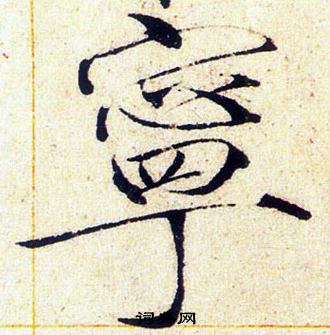 寧
词典网